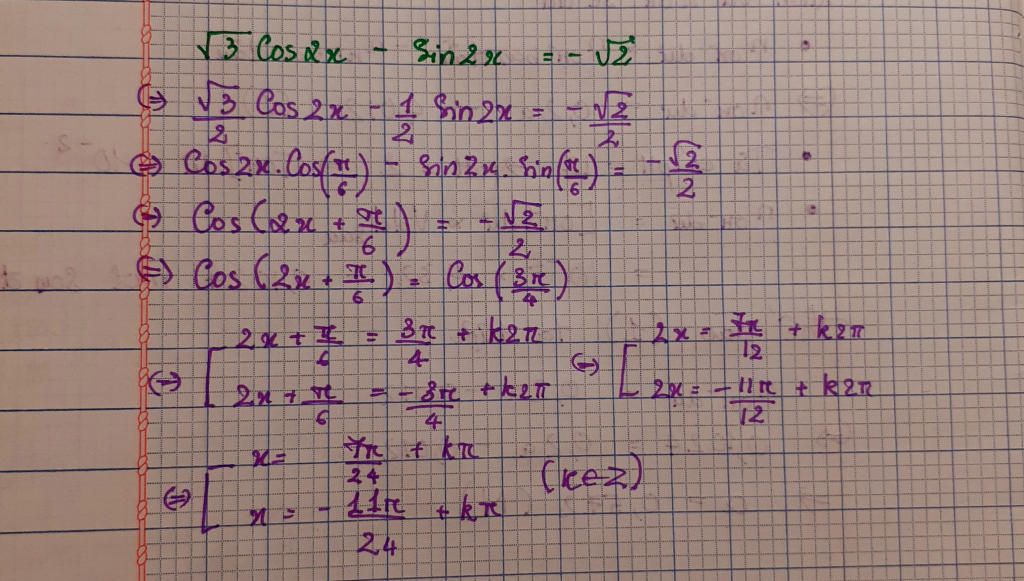 √3 Cos2x - Sin2x = - √2
⇔ √3/2 Cos2x - 1/2 Sin2x = - √2/2
⇔ Cos2x.Cos(π/6) - Sin2x.Sin(π/6) = - √2/2
⇔ Cos(2x + π/6) = - √2/2
⇔ Cos(2x + π/6) = Cos(3π/4)
⇔ [ 2x + π/6 = 3π/4 + k2π ⇔ [ 2x = 7π/12 + k2π
2x + π/6 = -3π/4 + k2π 2x = -11π/12 + k2π
⇔ [ x = 7π/24 + kπ (k∈Z)
x = - 11π/24 + kπ